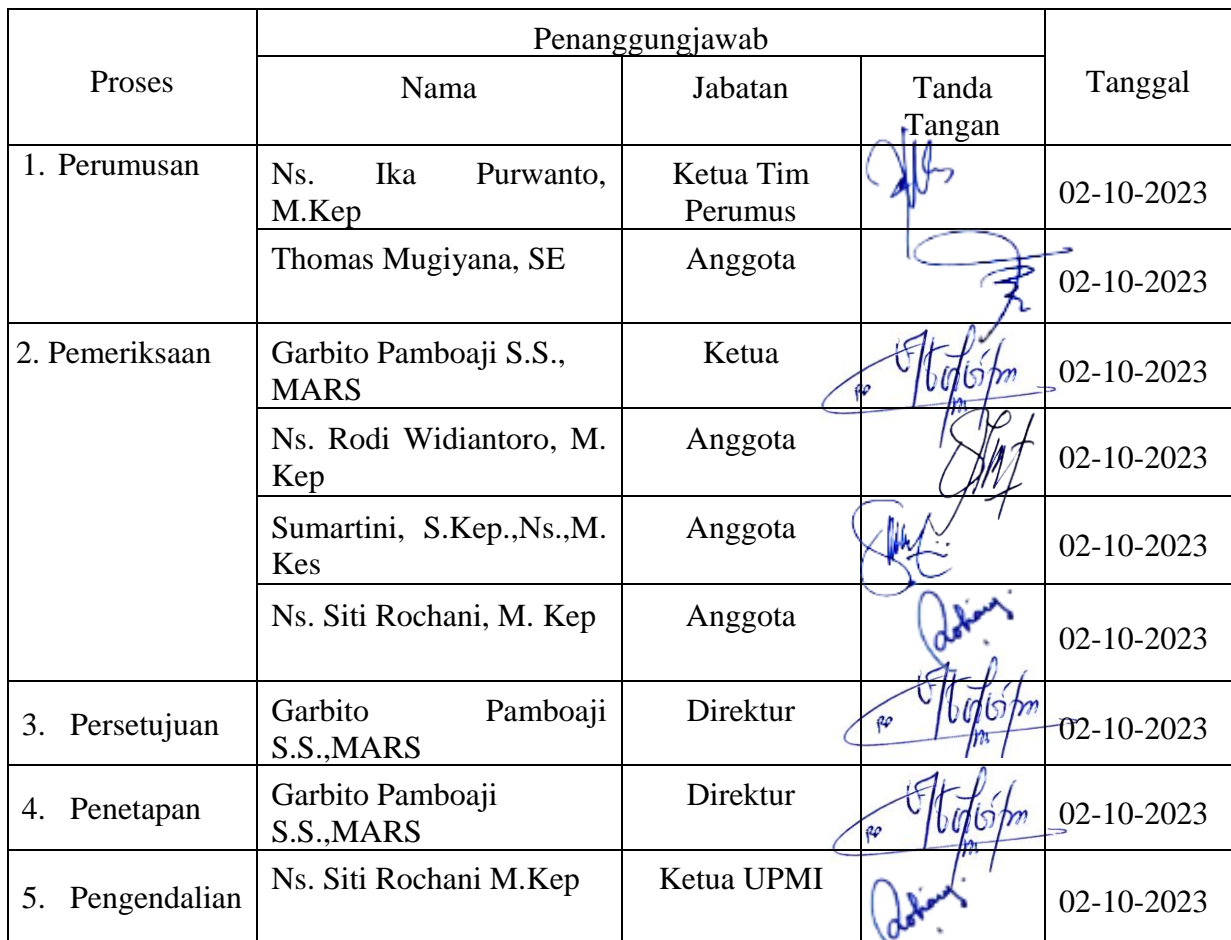 Proses
Penanggungjawab
Tanggal
Nama
Jabatan
Tanda
Tangan
1. Perumusan
Ns. Ika Purwanto,
M.Kep
Ketua Tim
Perumus
02-10-2023
Thomas Mugiyana, SE
Anggota
02-10-2023
2. Pemeriksaan
Garbito Pamboaji S.S.,
MARS
Ketua
02-10-2023
Ns. Rodi Widiantoro, M.
Kep
Anggota
02-10-2023
Sumartini, S.Kep.,Ns.,M.
Kes
Anggota
02-10-2023
Ns. Siti Rochani, M. Kep
Anggota
02-10-2023
3. Persetujuan
Garbito Pamboaji
S.S.,MARS
Direktur
02-10-2023
4. Penetapan
Garbito Pamboaji
S.S.,MARS
Direktur
02-10-2023
5. Pengendalian
Ns. Siti Rochani M.Kep
Ketua UPMI
02-10-2023